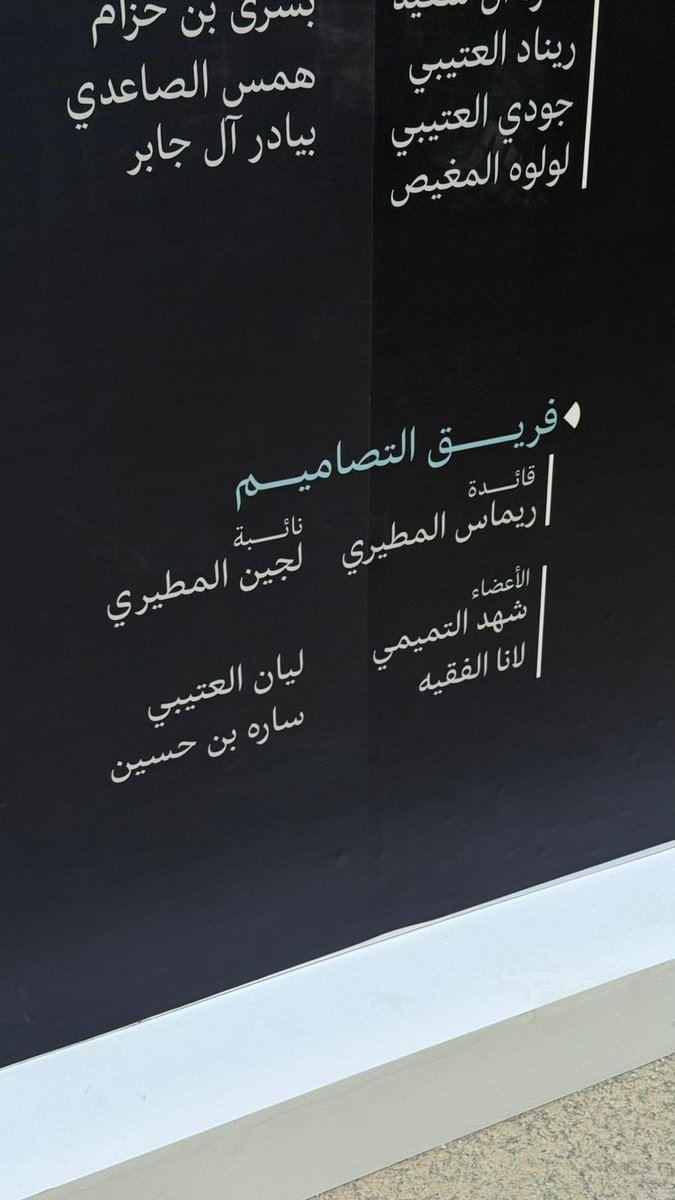 ريناد العتيبي
جودي العتيبي
لولوه المغيص
بشرى بن حزام
همس الصاعدي
بيادر آل جابر
فريق التصاميم
قائدة
ريماس المطيري
نائبة
لجين المطيري
الأعضاء
شهد التميمي
لانا الفقيه
ليان العتيبي
ساره بن حسين